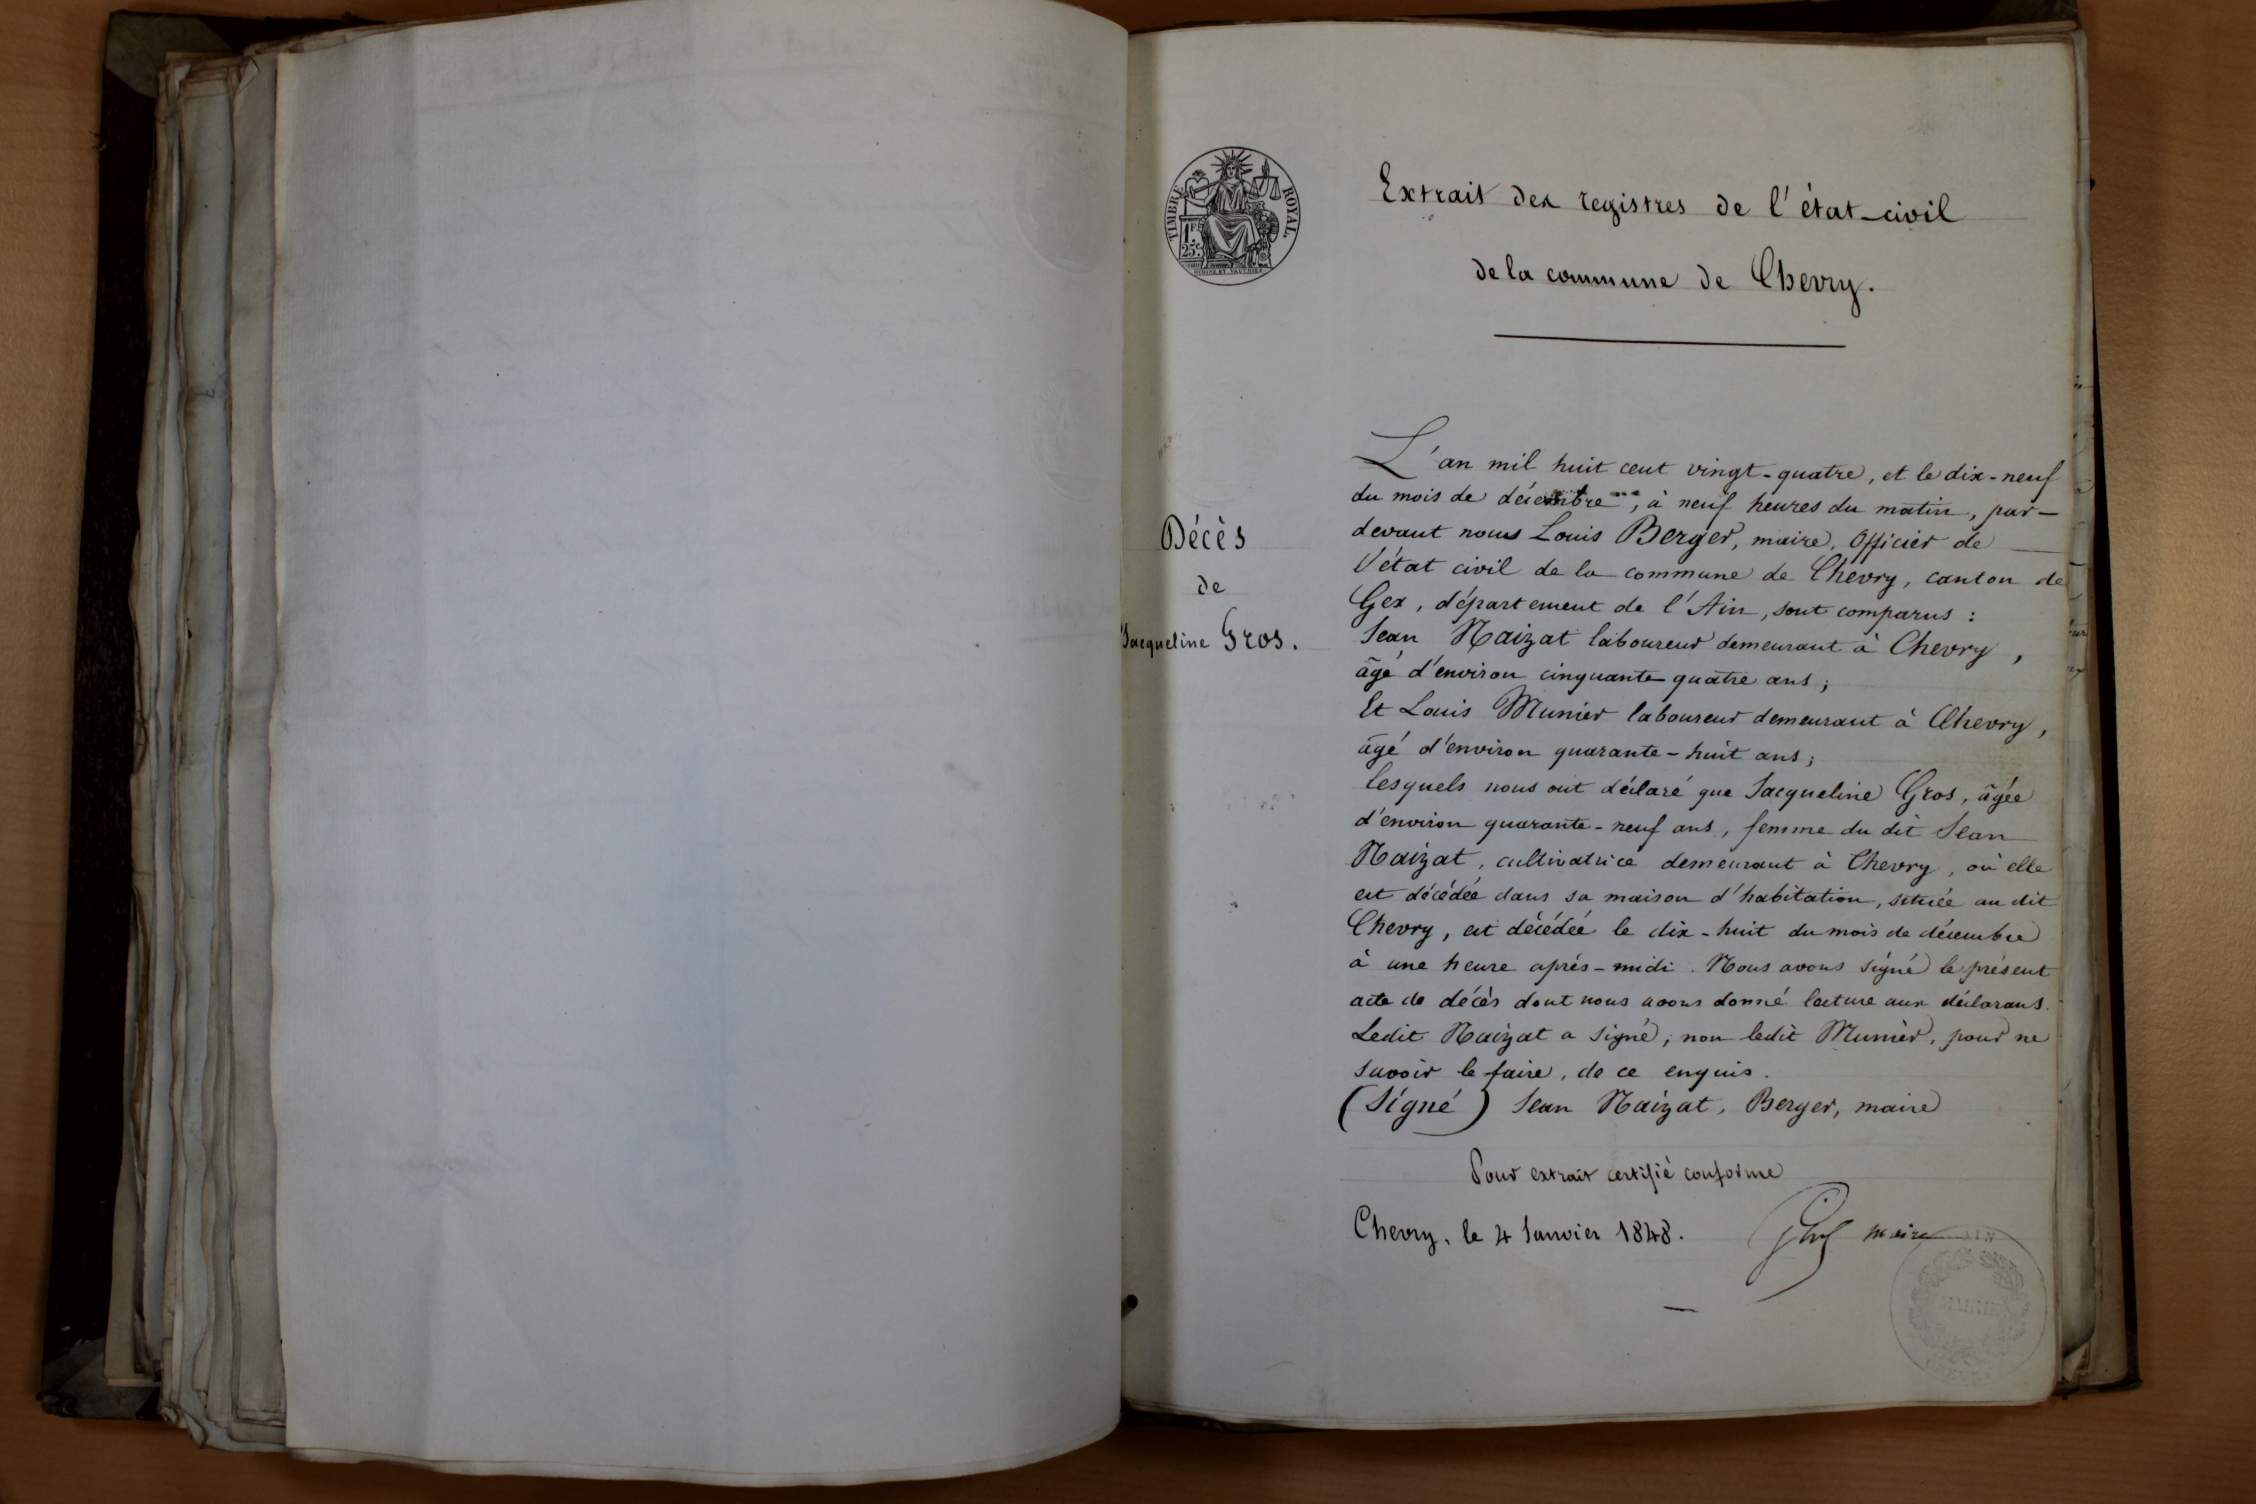 TIMBRE ROYAL.
1F.
25c.
Extrait des registres de l'état-civil
de la commune de Chevry.
Décès
de
Jacqueline Gros.
L'an mil huit cent vingt-quatre, et le dix-neuf
du mois de décembre, à neuf heures du matin, par-
devant nous Louis Berger, maire, Officier de
l'état civil de la commune de Chevry, canton de
Gex, département de l'Ain, sont comparus :
Jean Naizat laboureur demeurant à Chevry,
âgé d'environ cinquante quatre ans;
Et Louis Munier laboureur demeurant à Chevry,
âgé d'environ quarante-huit ans;
lesquels nous ont déclaré que Jacqueline Gros, âgée
d'environ quarante-neuf ans, femme du dit Jean
Naizat, cultivatrice demeurant à Chevry, où elle
est décédée dans sa maison d'habitation, située au dit
Chevry, est décédée le dix-huit du mois de décembre
à une heure après-midi. Nous avons signé le présent
acte de décès dont nous avons donné lecture aux déclarans.
Ledit Naizat a signé; non ledit Munier, pour ne
savoir le faire, de ce enquis.
(Signé) Jean Naizat, Berger, maire
Pour extrait certifié conforme
Chevry, le 4 Janvier 1848.
maire
AIN